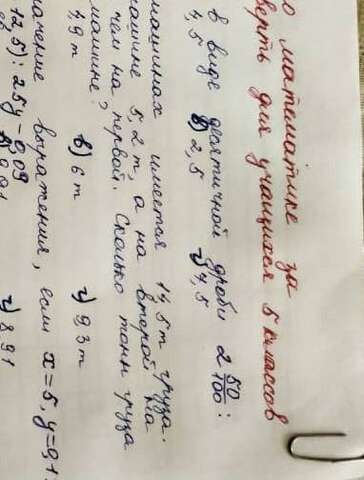 о математике за
верть для учащихся 5 классов
в виде десятичной дроби 2 50/100 :
4,5 в) 2,5 г) 7,5
машинах имеется 14,5 т груза. На
ашине 5,2 т, а на второй
чем на первой. Сколько тонн груза
машине?
в) 6 т г) 9,3 т
ачение выражения, если x=5, y=9,1:
12,5) : 2,5y - 0,09